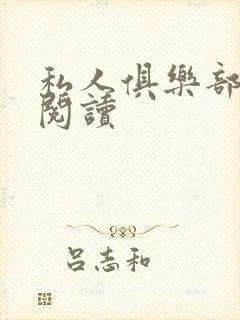 私人俱樂部
閱讀
呂志和